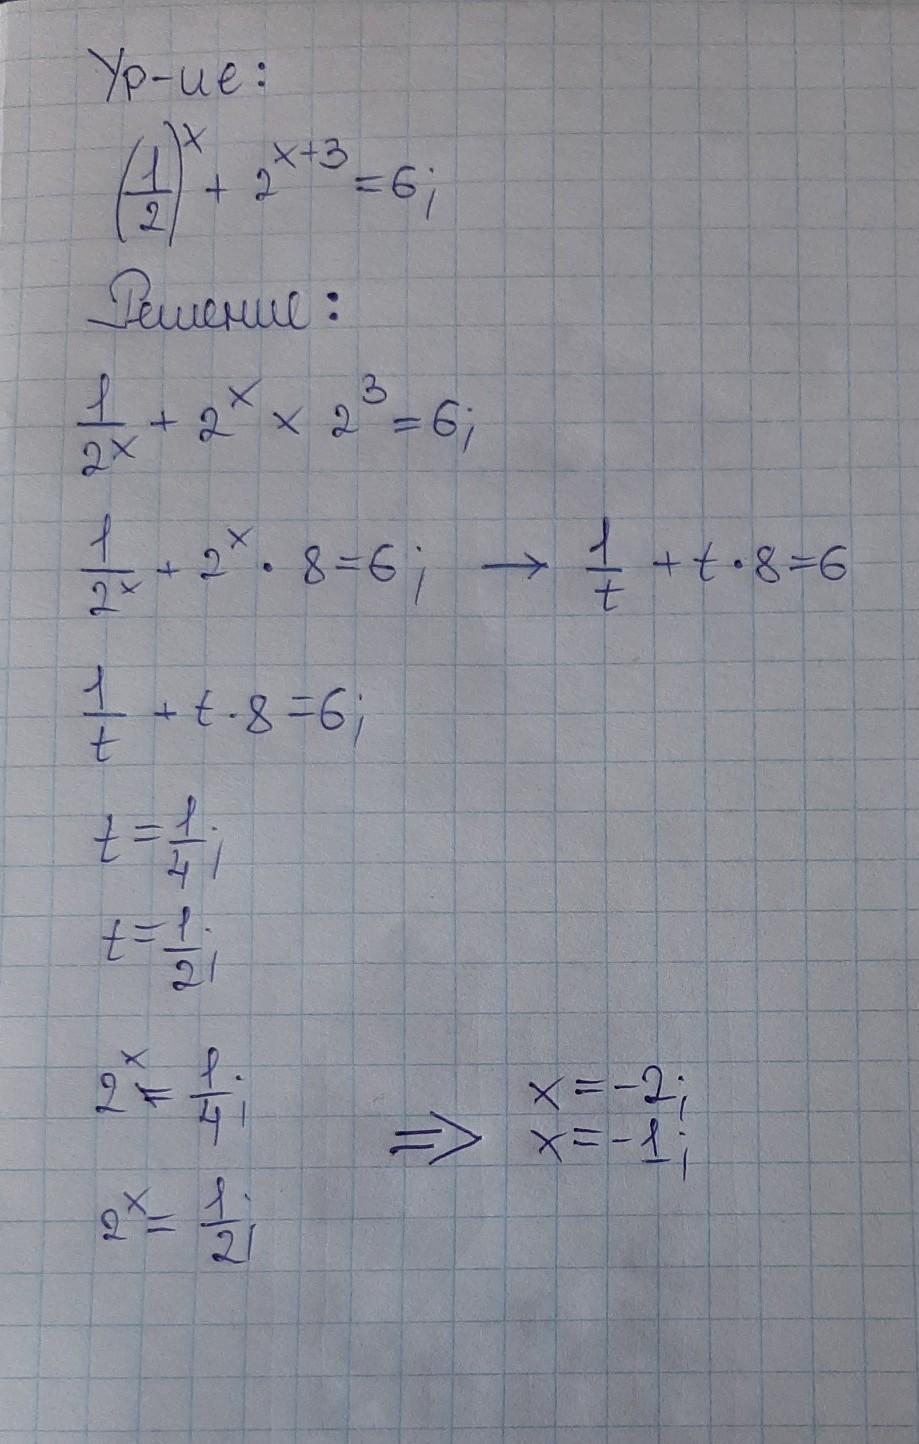 Ур-ие:
(1/2)^x + 2^(x+3) = 6;
Решение:
1/2^x + 2^x × 2^3 = 6;
1/2^x + 2^x · 8 = 6; → 1/t + t · 8 = 6
1/t + t · 8 = 6;
t = 1/4;
t = 1/2;
2^x = 1/4;
2^x = 1/2;
⇒ x = -2;
x = -1;